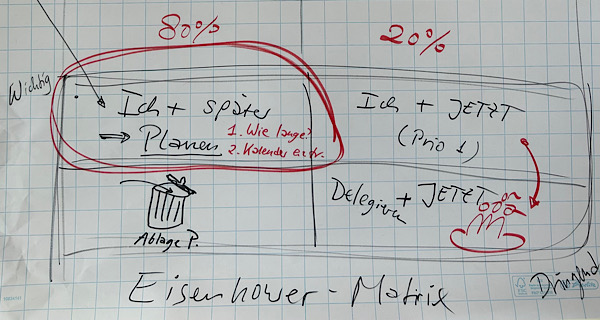 80%
20%
Wichtig
Ich + später
→ Planen
1. Wie lange?
2. Kalender eintr.
Ich + JETZT
(Prio 1)
Delegieren + JETZT
Ablage P.
Dringend
Eisenhower-Matrix